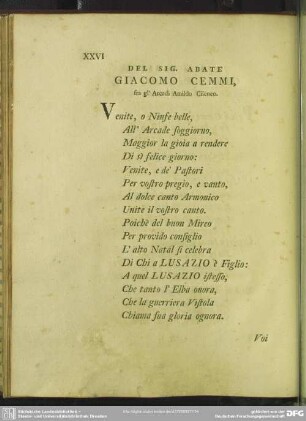 XXVI
DEL SIG. ABATE
GIACOMO CEMMI,
fra gl' Arcadi
Venite, o Ninfe belle,
All' Arcade ſoggiorno,
Maggior la gioia a rendere
Di sì felice giorno:
Venite, e de' Paſtori
Per voſtro pregio, e vanto,
Al dolce canto Armonico
Unite il voſtro canto.
Poichè del buon Mireo
Per provido conſiglio
L' alto Natal ſi celebra
Di Chi a LUSAZIO è Figlio:
A quel LUSAZIO iſteſſo,
Che tanto l' Elba onora,
Che la guerriera Viſtola
Chiama ſua gloria ognora.
Voi